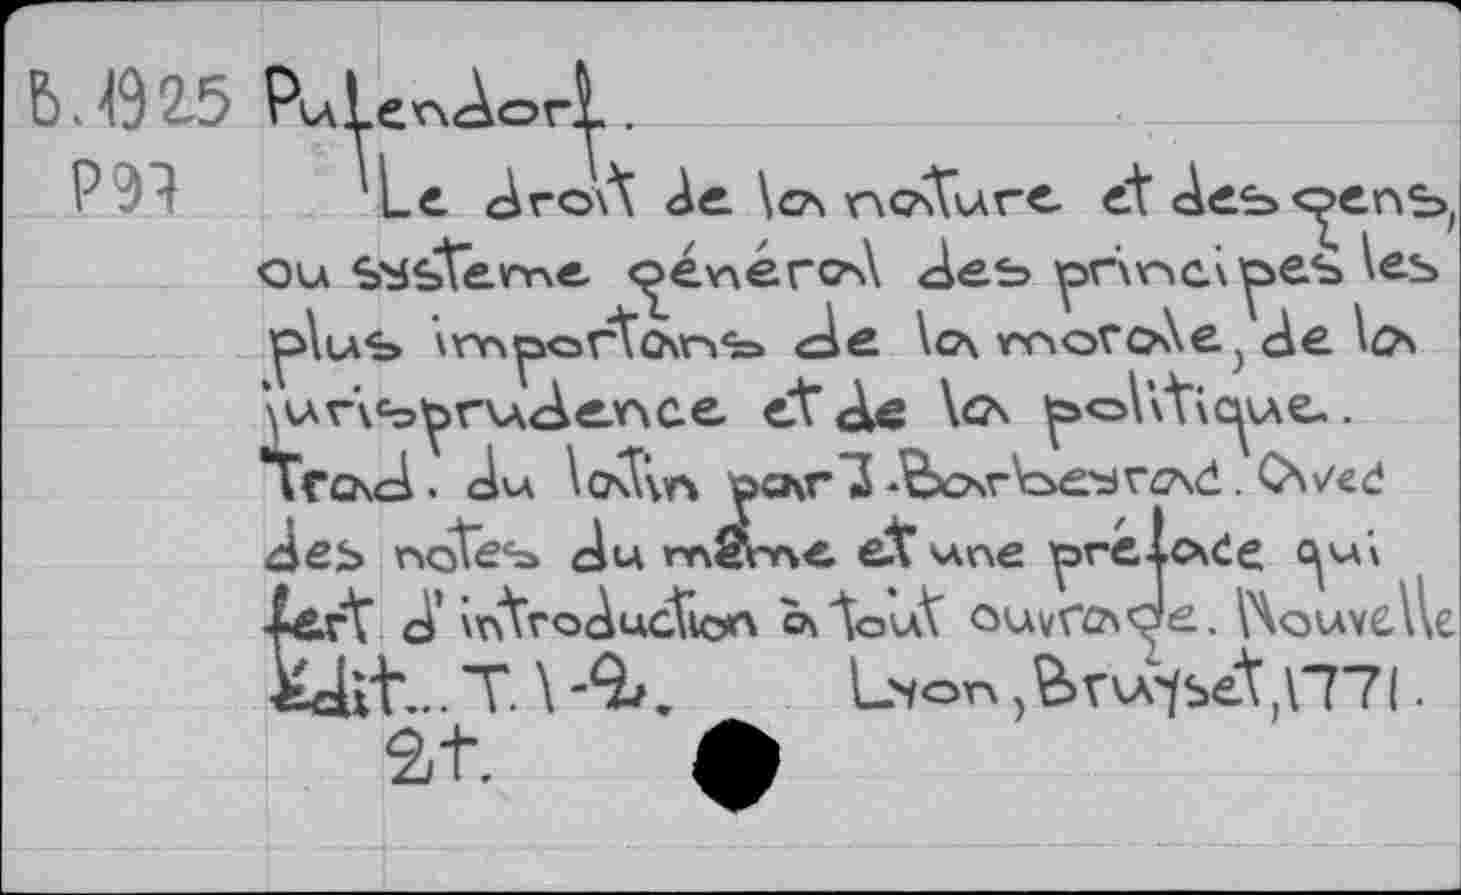 B.1925 Pufendorf.
P97 Le droit de la nature et des gens,
ou système général des principes les
plus importans de la morale, de la
jurisprudence et de la politique.
Trad. du latin par J. Barbeyrac. Avec
des notes du même et une préface qui
sert d'introduction à tout ouvrage. Nouvelle
Édit... T.1-2. Lyon, Bruyset, 1771.
2t.